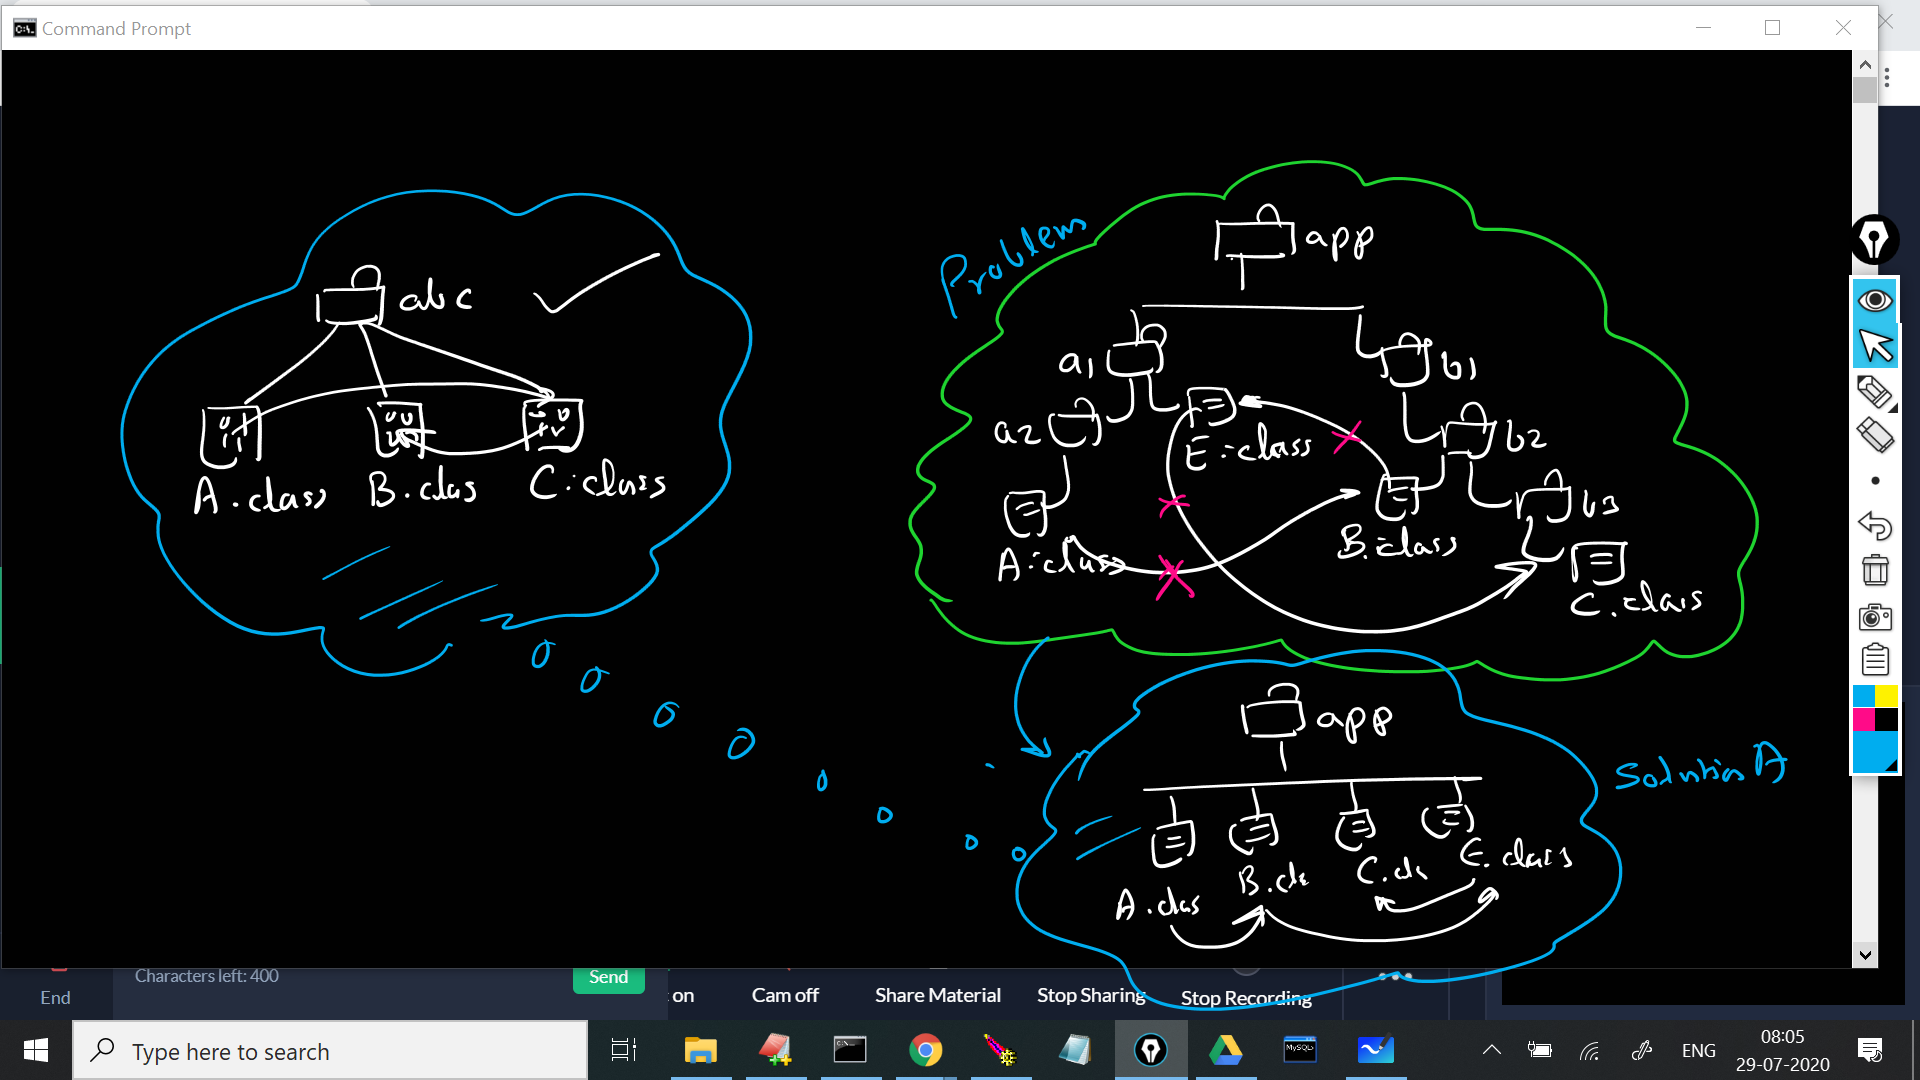 Command Prompt
abc
A.class
B.clas
C.class
Problem
app
a1
b1
a2
E.class
b2
b3
A.class
B.class
C.class
app
Solution A
A.clas
B.cls
C.cls
E.class
Characters left: 400
Send
End
on
Cam off
Share Material
Stop Sharing
Stop Recording
Type here to search
MySQL
ENG
08:05
29-07-2020